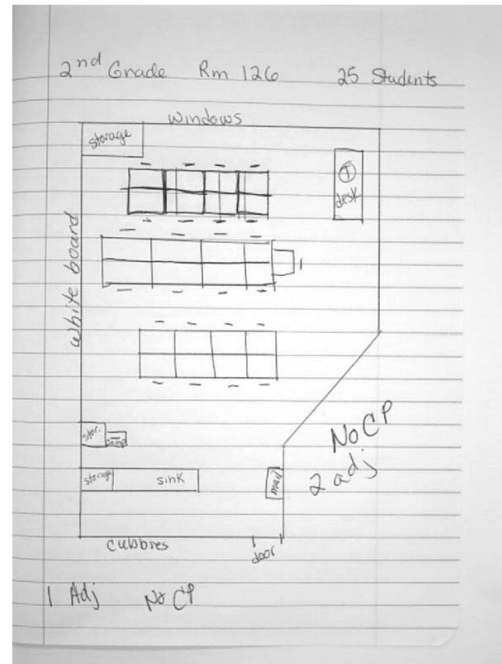 2nd Grade Rm 126 25 Students
windows
storage
T
desk
white board
stor.
storage
sink
mail
No CP
2 adj
cubbies
door
1 Adj No CP